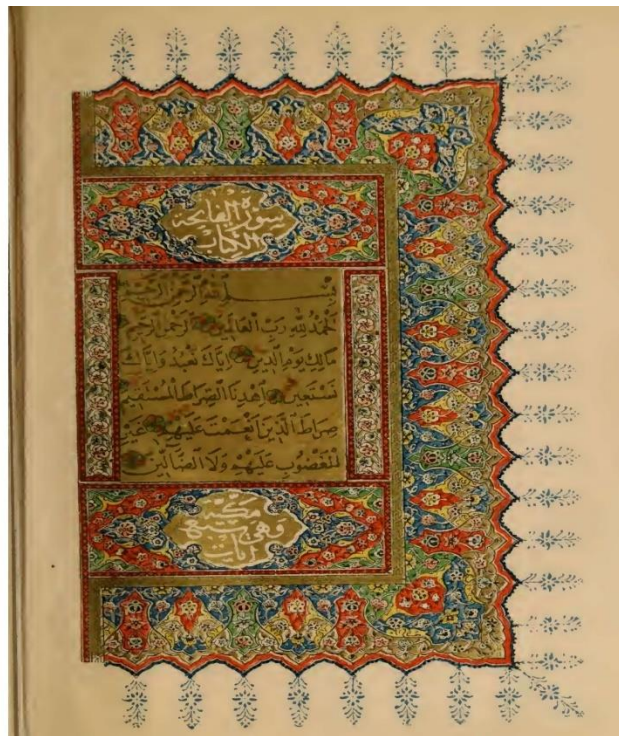 سورة الفاتحة
الكتاب
بسم الله الرحمن الرحيم
الحمد لله رب العالمين الرحمن الرحيم
مالك يوم الدين اياك نعبد واياك
نستعين اهدنا الصراط المستقيم
صراط الذين انعمت عليهم غير
المغضوب عليهم ولا الضالين
مكية
وهي سبع
ايات